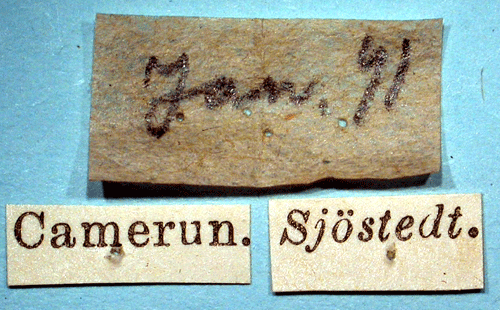 Jan. 91
Camerun.
Sjöstedt.